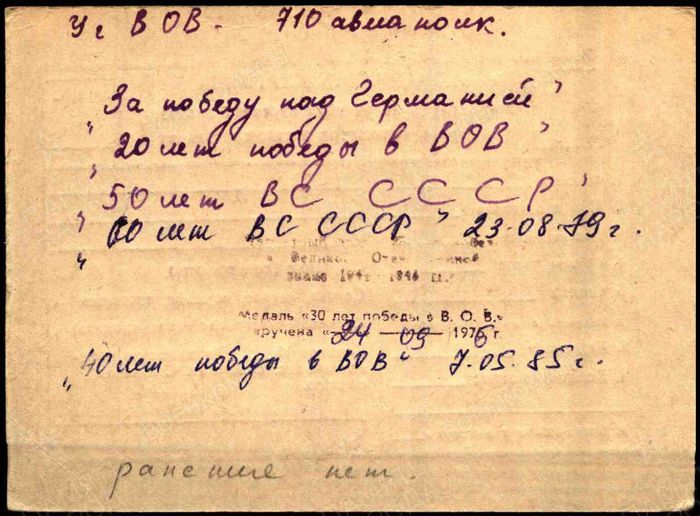 Уг ВОВ - 710 авиаполк.
"За победу над Германией"
"20 лет победы в ВОВ"
"50 лет ВС СССР"
"60 лет ВС СССР" 23-08-79 г.
Велико Отеч
Медаль «30 лет победы в В. О. В.»
вручена « 24 — 09 1976 г.
"40 лет победы в ВОВ" 7.05.85 г.
ранение нет.